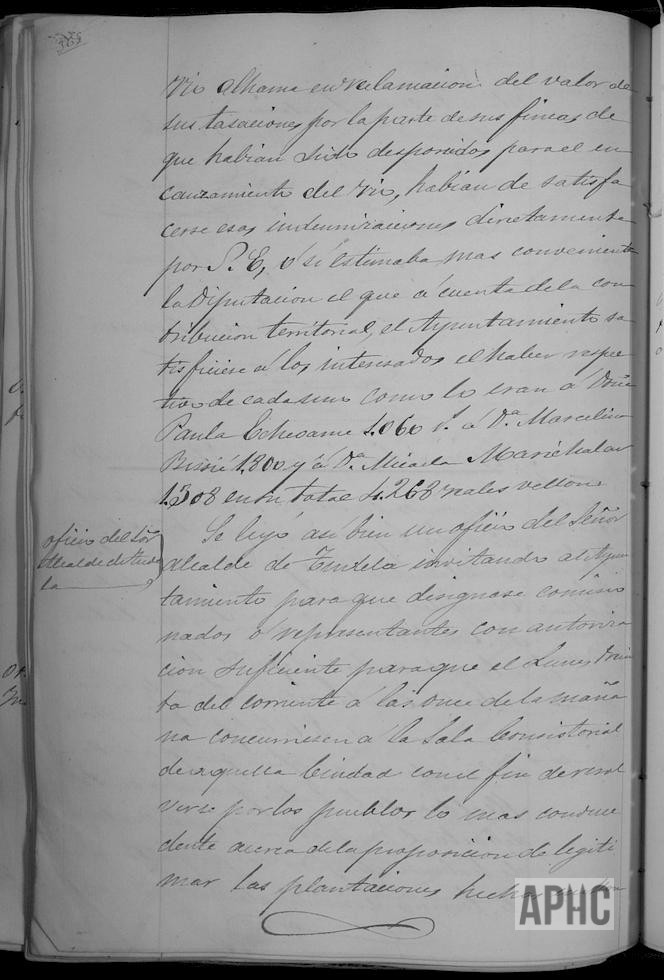 rio Alhama en reclamacion del valor de
sus tasaciones por la parte de sus fincas de
que habian sido desposeidos para el en
cauzamiento del rio, habian de satisfa
cerse esas indemnizaciones directamente
por S. E, ó si estimaba mas conveniente
la Diputacion el que á cuenta de la con
tribucion territorial, el Ayuntamiento sa
tisficiese á los interesados el haber respec
tivo de cada uno como lo eran á Doña
Paula Echesarne 1.060 á D.ª Marcelina
1.800 y á D.ª Micaela Marichalar
1.308 en su total 4.268 reales vellon.
oficio del Sor
Alcalde de Tude
la
Se leyó asi bien un oficio del Señor
Alcalde de Tudela invitando al Ayun
tamiento para que designase comisio
nados ó representantes con autoriza
cion suficiente para que el Lunes trein
ta del corriente á las once de la maña
na concurriesen á la Sala Consistorial
de aquella Ciudad con el fin de resol
verse por los pueblos lo mas condu
cente acerca de la proposicion de legiti
mar las plantaciones hechas
APHC